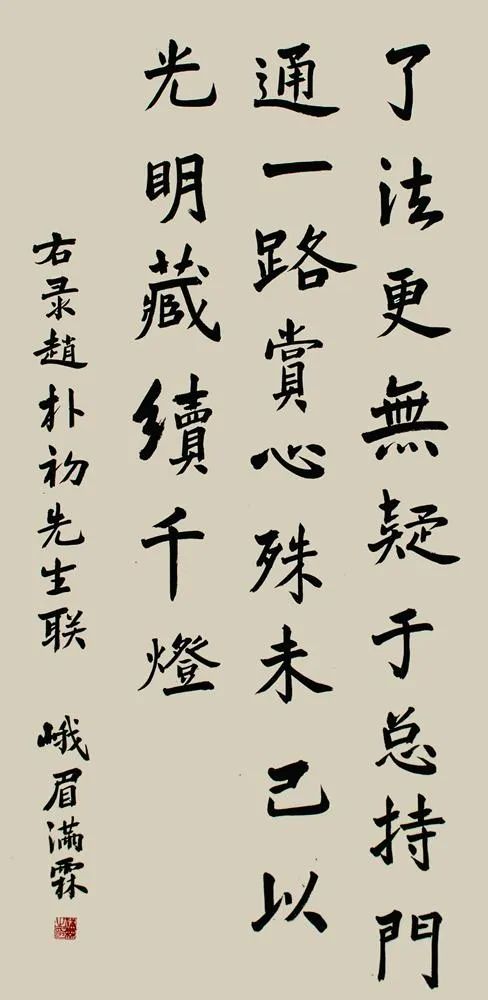 了法更無疑于总持門
通一路赏心殊未己以
光明藏續千燈
右录趙朴初先生联
峨眉满霖